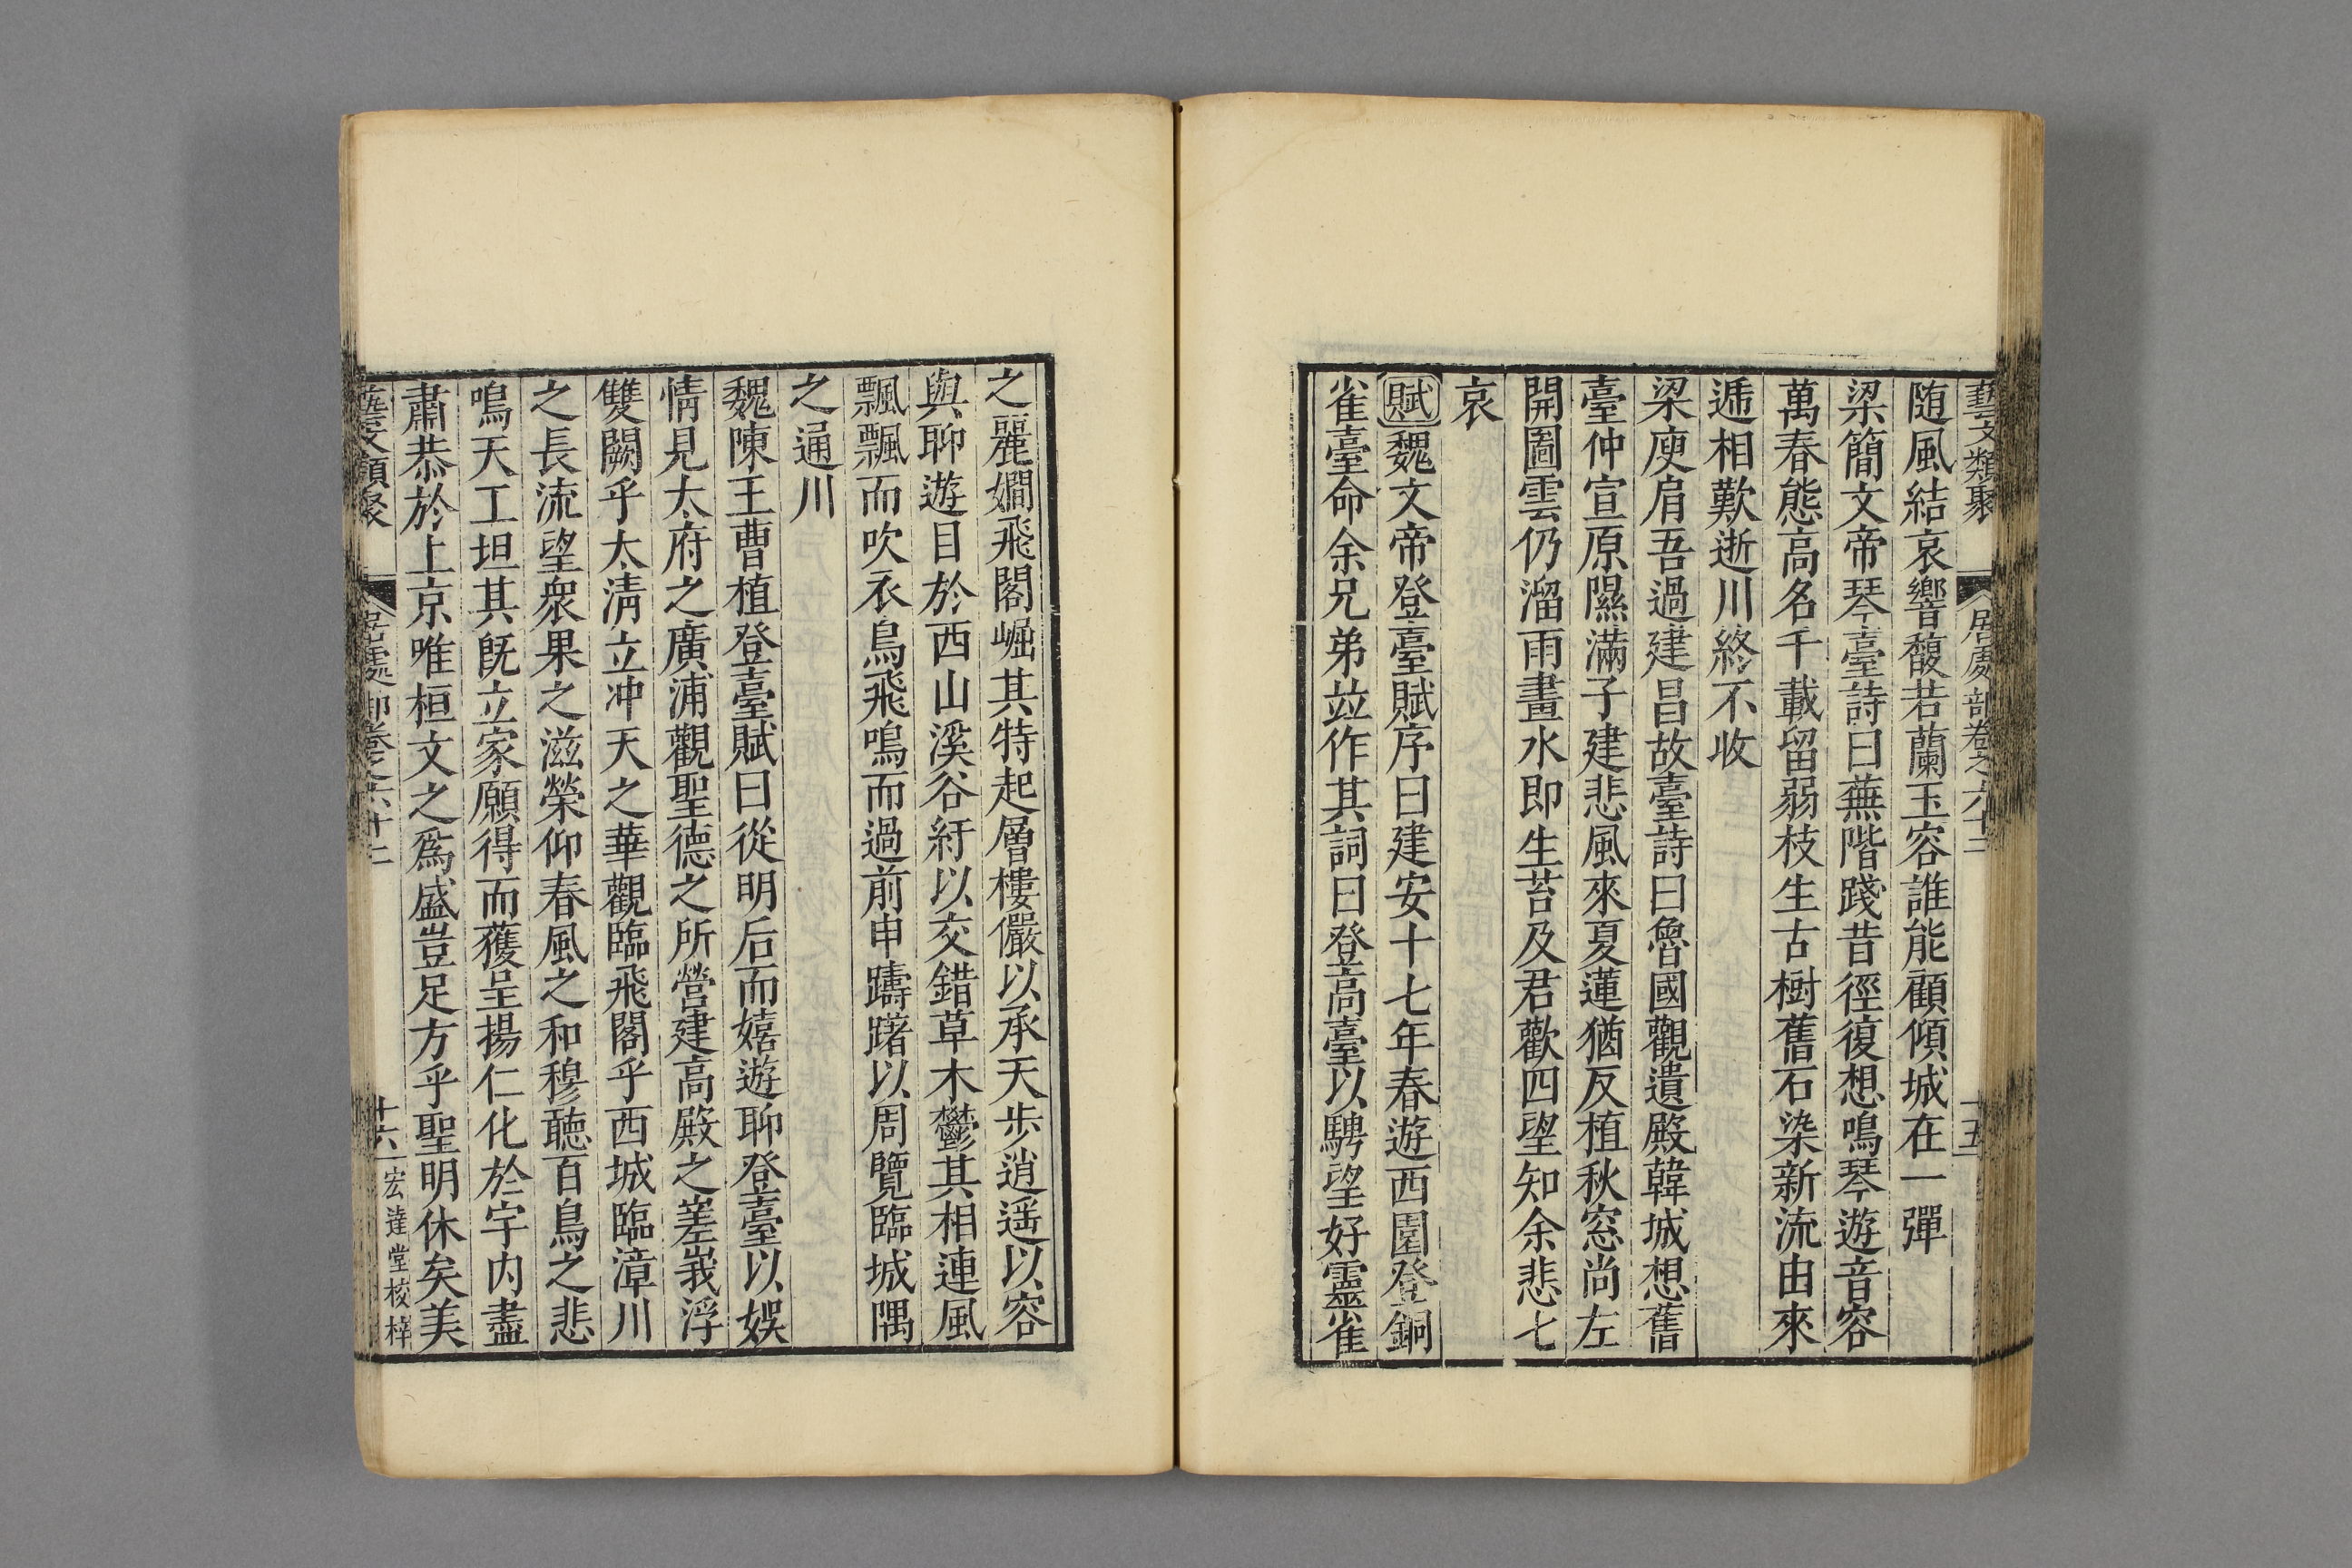 藝文類聚 居處部卷之六十二 十五
随風結哀響馥若蘭玉容誰能顧傾城在一彈
梁簡文帝琴臺詩曰蕪階踐昔徑復想鳴琴遊音容
萬春態高名千載留弱枝生古樹舊石染新流由來
遞相歎逝川終不收
梁庾肩吾過建昌故臺詩曰魯國觀遺殿韓城想舊
臺仲宣原隰滿子建悲風來夏蓮猶反植秋窓尚左
開圖雲仍溜雨畫水即生苔及君歡四望知余悲七
哀
賦魏文帝登臺賦序曰建安十七年春遊西園登銅
雀臺命余兄弟竝作其詞曰登高臺以騁望好靈雀
之麗嫺飛閣崛其特起層樓儼以承天步逍遥以容
與聊遊目於西山溪谷紆以交錯草木鬱其相連風
飄飄而吹衣鳥飛鳴而過前申躊躇以周覽臨城隅
之通川
魏陳王曹植登臺賦曰從明后而嬉遊聊登臺以娛
情見太府之廣浦觀聖德之所營建高殿之嵳峩浮
雙闕乎太清立冲天之華觀臨飛閣乎西城臨漳川
之長流望衆果之滋榮仰春風之和穆聽百鳥之悲
鳴天工坦其旣立家願得而獲呈揚仁化於宇内盡
肅恭於上京唯桓文之爲盛豈足方乎聖明休矣美
藝文類聚 居處部卷之六十二 十六 宏逹堂校梓